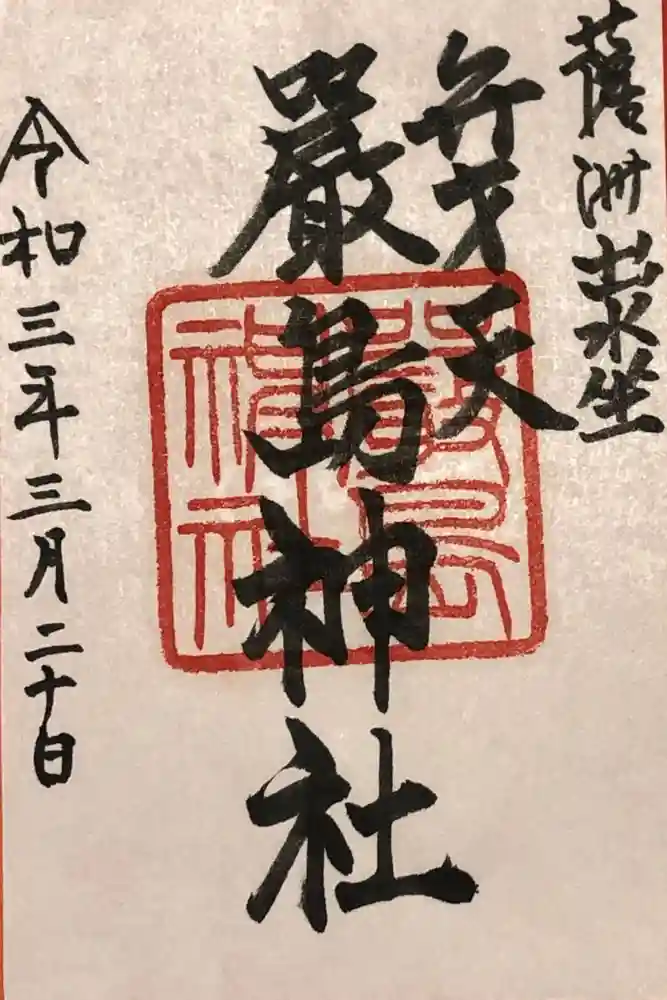 薩洲出水坐
弁才天
嚴島神社
令和三年三月二十日
嚴島
神社